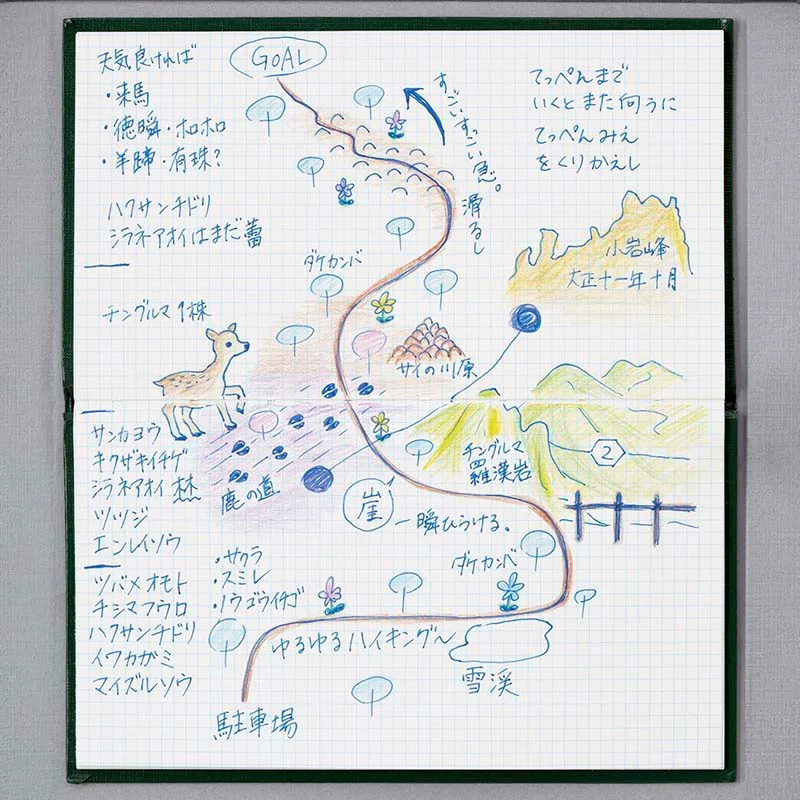 天気良ければ
・来馬
・徳瞬・ホロホロ
・羊蹄・有珠?
ハクサンチドリ
シラネアオイはまだ蕾
GOAL
すごいすっごい急。
滑るし
てっぺんまで
いくとまた向うに
てっぺんみえ
をくりかえし
小岩峰
大正十一年十月
ダケカンバ
チングルマ1株
サイの川原
サンカヨウ
キクザキイチゲ
シラネアオイ 林
ツツジ
エンレイソウ
鹿の道
チングルマ
羅漢岩
2
崖
一瞬ひらける。
ダケカンバ
ツバメオモト
チシマフウロ
ハクサンチドリ
イワカガミ
マイズルソウ
・サクラ
・スミレ
・ノウゴウイチゴ
ゆるゆるハイキング〜
雪渓
駐車場